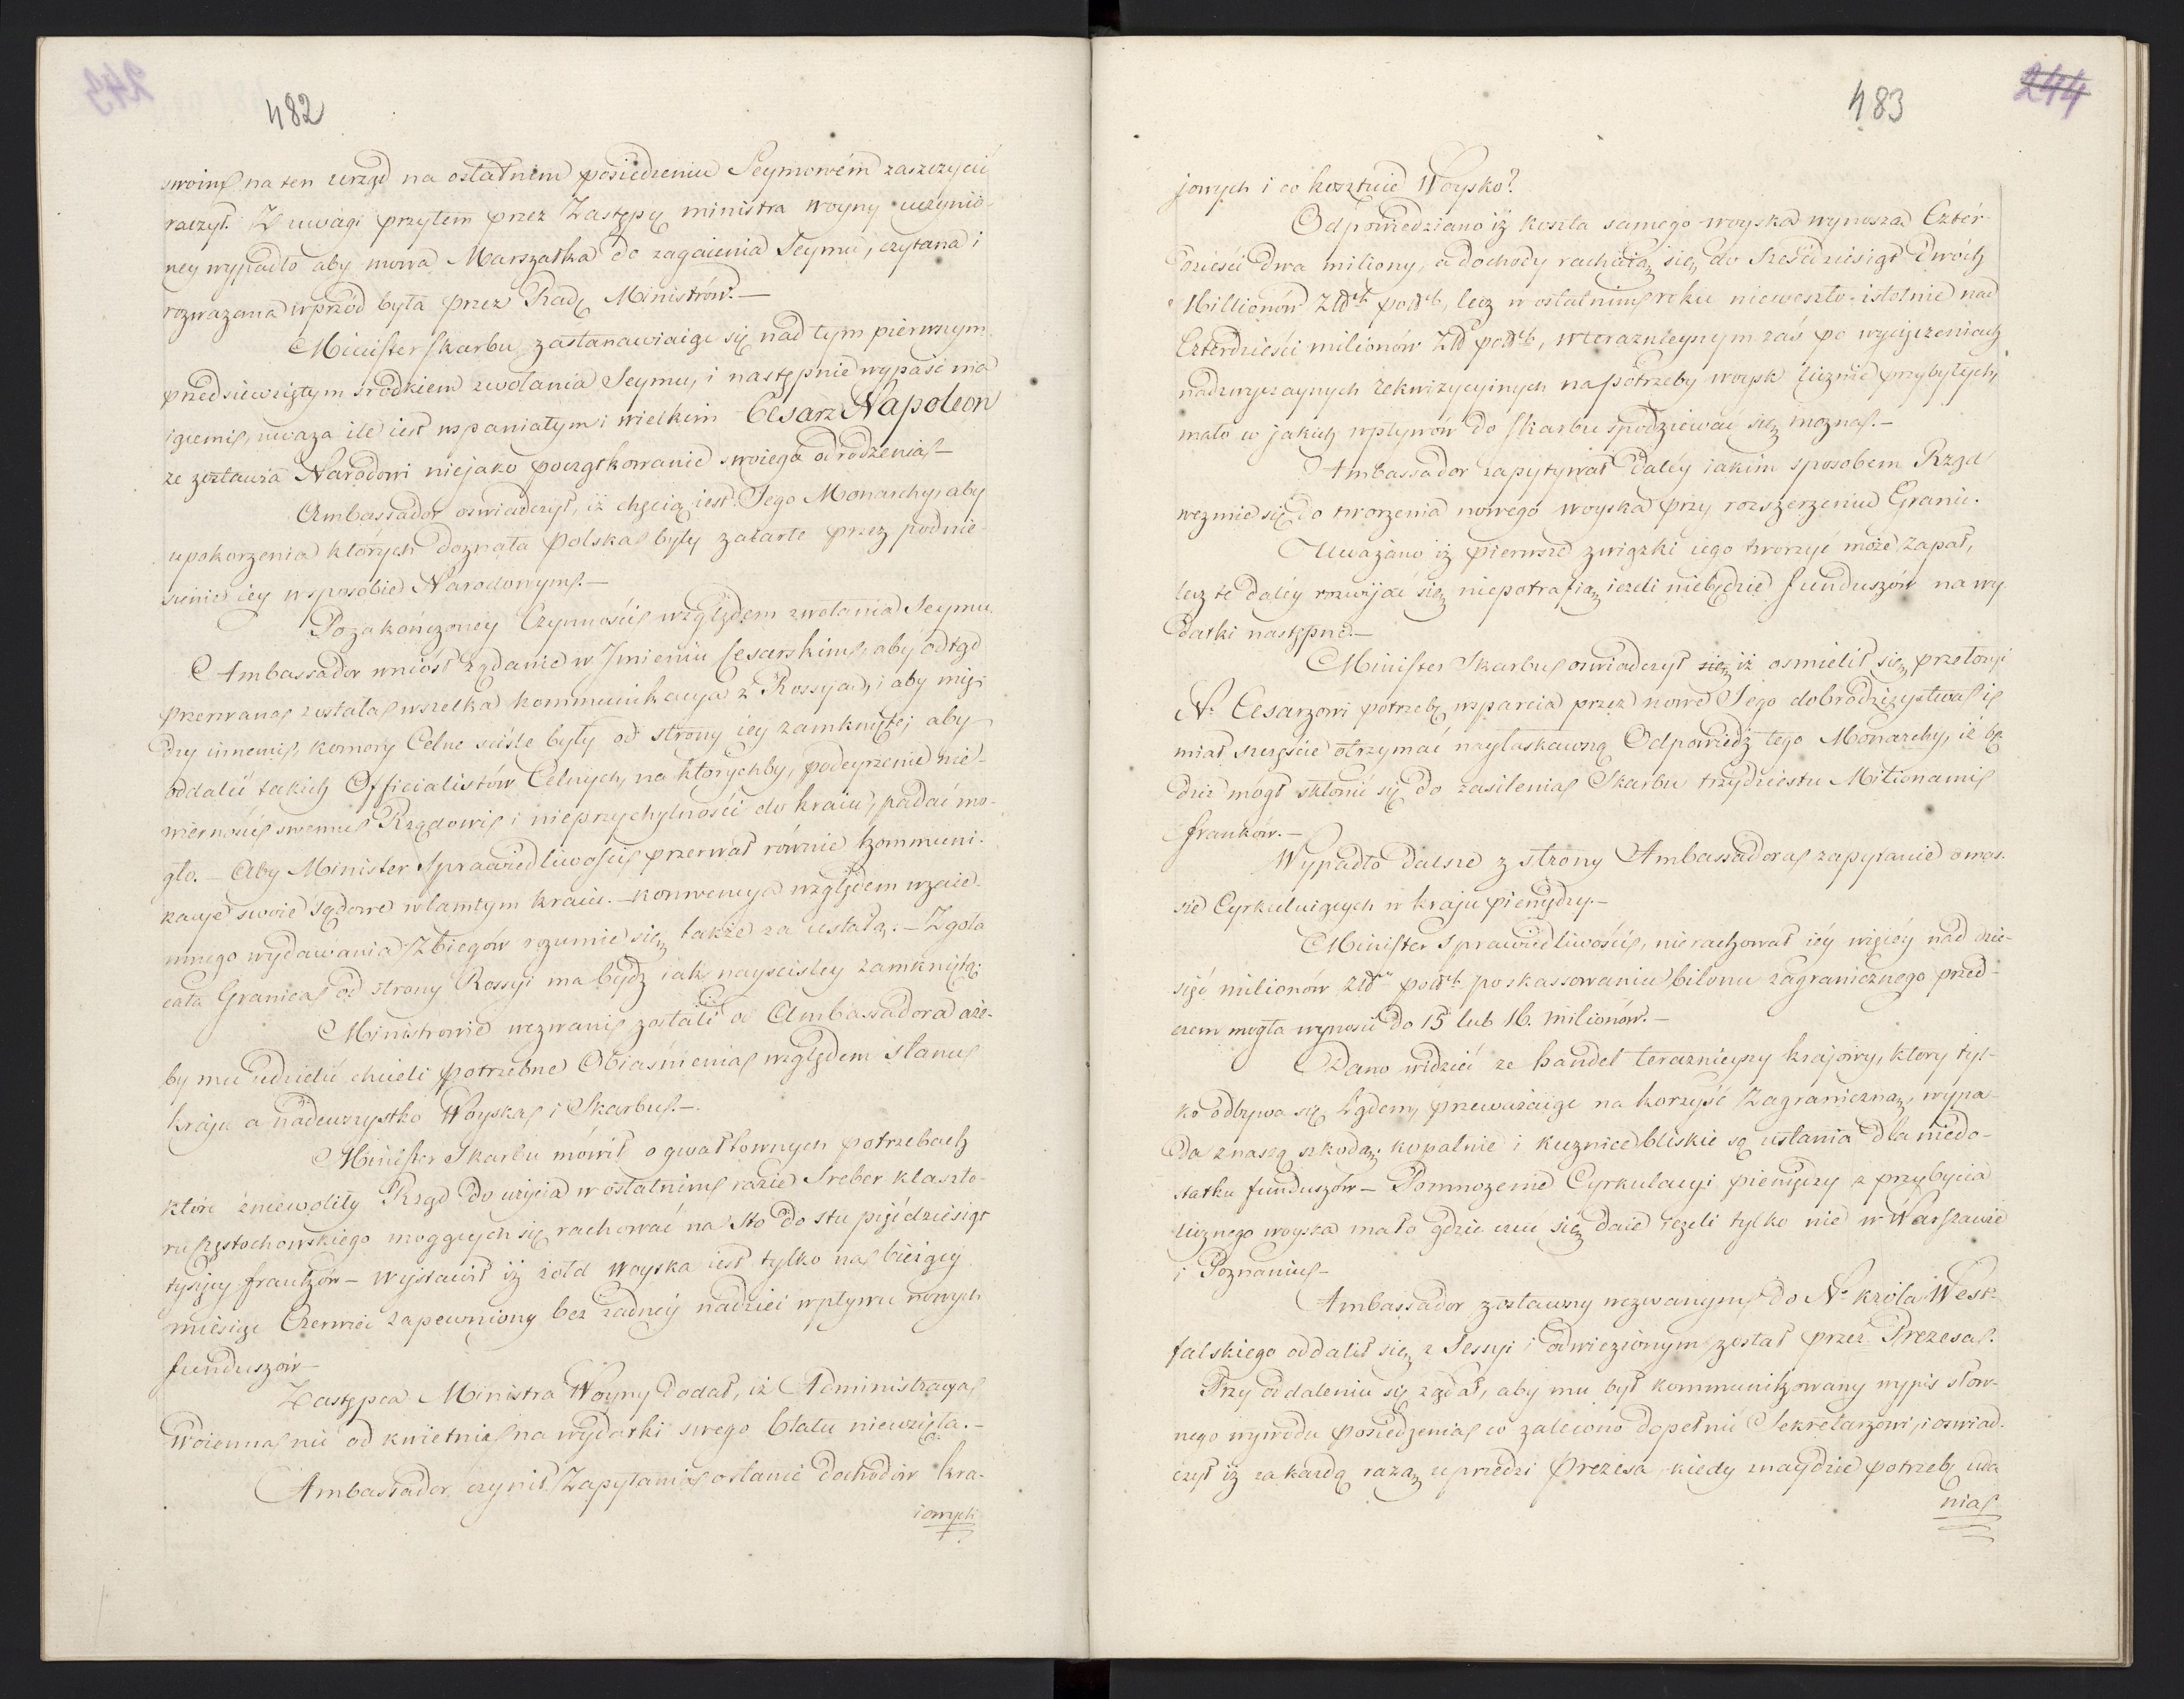 243
482
swoim na ten urząd na ostatnim posiedzeniu Seymowém zaszczycić
raczył. Z uwagi przytem przez Zastępcę ministra woyny uczynio-
ney wypadło aby mowa Marszałka do zagaienia Seymu, czytana i
rozważana wprzód była przez Radę Ministrów. —
Minister skarbu zastanawiaiąc się nad tym pierwszym
przedsięwziętym srodkiem zwołania Seymu, i następnie wypaść ma
iącemi, uważa ile iest wspaniałym i wielkim Cesarz Napoleon
ze zostawia Narodowi niejako początkowanie swoiego odrodzenia —
Ambassador oswiadczył, iż chęcią iest Jego Monarchy, aby
upokorzenia których doznała Polska były zatarte przez podnie-
sienie iey w sposobie Narodowym. —
Po zakończoney Czynności względem zwołania Seymu
Ambassador wniósł żądanie w Imieniu Cesarskim, aby odtąd
przerwana została wszelka kommunikacya z Rossyą, i aby mię-
dzy innemi, komory Celne ściśle były od strony iey zamknięte; aby
oddalić takich Officialistów Celnych, na którychby, podeyrzenie nie-
wierności swemu Rządowi i nieprzychylności do kraiu, padać mo-
gło. — Aby Minister Sprawiedliwości przerwał równie kommuni-
kacye swoie sądowe w tamtym kraiu. — konwencya względem wzaie-
mnego wydawania Zbiegów rozumie się także za ustałą: — Zgoła
cała Granica od strony Rossyi ma bydź iak nayscisley zamkniętą.
Ministrowie wezwani zostali od Ambassadora aże-
by mu udzielić chcieli potrzebne Obiaśnienia względem stanu
kraju a nadewszystko Woyska i Skarbu. —
Minister Skarbu mówił o gwałtownych potrzebach
które zniewoliły Rząd do użycia w ostatnim razie Sreber klaszto-
ru Częstochowskiego mogących się rachować na Sto do stu pięćdziesiąt
tysięcy franków — wystawił iż żołd woyska iest tylko na bieżący
miesiąc Czerwiec zapewniony bez żadney nadziei wpływu nowych
funduszów —
Zastępca Ministra Woyny dodał, iż Administracya
Woienna nic od kwietnia na wydatki swego Etatu niewzięła. —
Ambassador czynił Zapytania o stanie dochodów kra-
iowych
244
483
jowych i co kosztuie Woysko?
Odpowiedziano iż koszta samego woyska wynoszą Czter-
dzieści dwa miliony, a dochody rachuią się do Sześćdziesiąt dwóch
Millionów Złłch polch, lecz w ostatnim roku nieweszło istotnie nad
Czterdzieści milionów Złł polch, w teraznieyszym zaś po wycięczeniach
nadzwyczaynych rekwizycyinych na potrzeby woysk licznie przybyłych,
mało w jakich wpływów do skarbu spodziewać się można. —
Ambassador zapytywał daléy iakim sposobem Rząd
wezmie się do tworzenia nowego woyska przy rozszerzeniu Granic.
Uważano iż pierwsze związki iego tworzyć może zapał,
lecz te daléy rozwijać się niepotrafią ieżeli niebędzie funduszów na wy-
datki następne. —
Minister Skarbu oswiadczył się iż osmielił się przełożyć
N. Cesarzowi potrzebę wsparcia przez nowe Jego dobrodzieystwa i
miał szczęście otrzymać nayłaskawszą Odpowiedź tego Monarchy, iż bę-
dzie mogł skłonić się do zasilenia Skarbu trzydziestu Milionami
franków. —
Wypadło dalsze z strony Ambassadora zapytanie o mas-
sie Cyrkuluiących w kraju pieniędzy. —
Minister Sprawiedliwości, nierachował iéy więcéy nad dzie-
sięć milionów Złł polch po skassowaniu bilonu zagranicznego przed-
czem mogła wynosić do 15 lub 16. milionów. —
Dano widzieć ze handel teraznieyszy krajowy, który tyl-
ko odbywa się Lądem, przeważaiąc na korzyść Zagraniczną, wypa-
da z naszą szkodą; kopalnie i kuznice bliskie są ustania dla niedo-
statku funduszów — Pomnożenie Cyrkulacyi pieniędzy z przybycia
licznego woyska mało gdzie czuć się daie ieżeli tylko nie w Warszawie
i Poznaniu —
Ambassador zostawszy wezwanym do N. króla West-
falskiego oddalił się z Sessyi i odwiezionym został przez Prezesa.
Przy oddaleniu się żądał, aby mu był kommunikowany wypis słow-
nego wywodu posiedzenia co zalecono dopełnić Sekretarzowi, i oswiad-
czył iż za każdą razą uprzedzi Prezesa, kiedy znaydzie potrzebę uda
nia